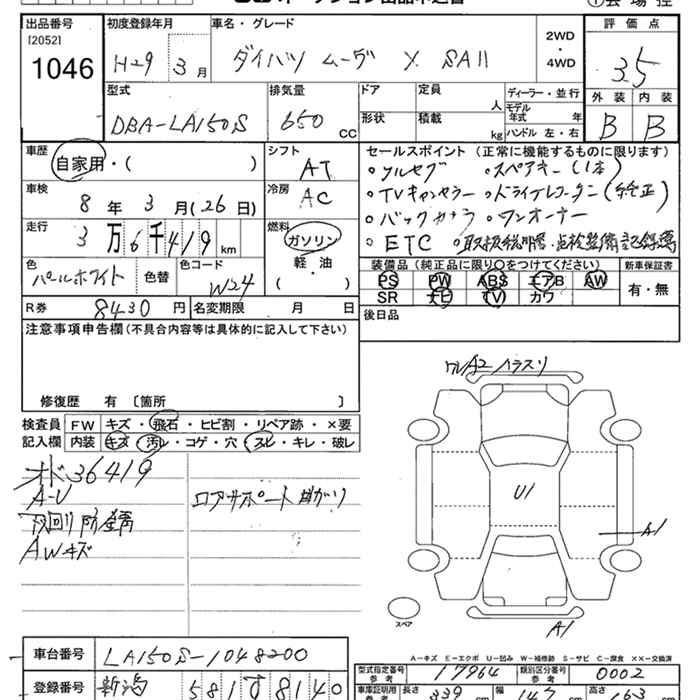 出品番号
[2052]
1046
初度登録年月
H29年 3月
車名・グレード
ダイハツ ムーヴ X SAII
2WD
・
4WD
評価点
3.5
外装 内装
B B
型式
DBA-LA150S
排気量
650 CC
ドア
形状
定員
人
積載
kg
ディーラー・並行
モデル
年式 年
ハンドル 左・右
車歴
自家用・( )
シフト
AT
車検
8年 3月(26日)
冷房
AC
走行
3万6千419km
燃料
ガソリン
軽・油
( )
色
パールホワイト
色替
色コード
W24
R券
8430円
名変期限 月 日
セールスポイント (正常に機能するものに限ります)
・フルセグ ・スペアキー(1本)
・TVキャンセラー ・ドライブレコーダー(純正)
・バックカメラ ・ワンオーナー
・ETC ・取扱説明書・点検整備記録簿
装備品(純正品に限り○をつけてください)
PS PW ABS エアB AW
SR ナビ TV カワ
新車保証書
有・無
後日品
注意事項申告欄(不具合内容等は具体的に記入して下さい)
修復歴 有 〔箇所 〕
検査員
記入欄
FW キズ・飛石・ヒビ割・リペア跡・×要
内装 キズ・汚レ・コゲ・穴・スレ・キレ・破レ
オド36419
A-U
下回り防錆
AWキズ
ロアサポート曲がり
U1
A1
A1
スペア
A-キズ E-エクボ U-凹み W-補修跡 S-サビ C-腐食 ××-交換済
車台番号
LA150S-1048200
登録番号
新潟 581 す 8140
型式指定番号
参考
17964
類別区分番号
参考
0002
車庫証明用
参考
長さ
339 cm
幅
147 cm
高さ
163 cm